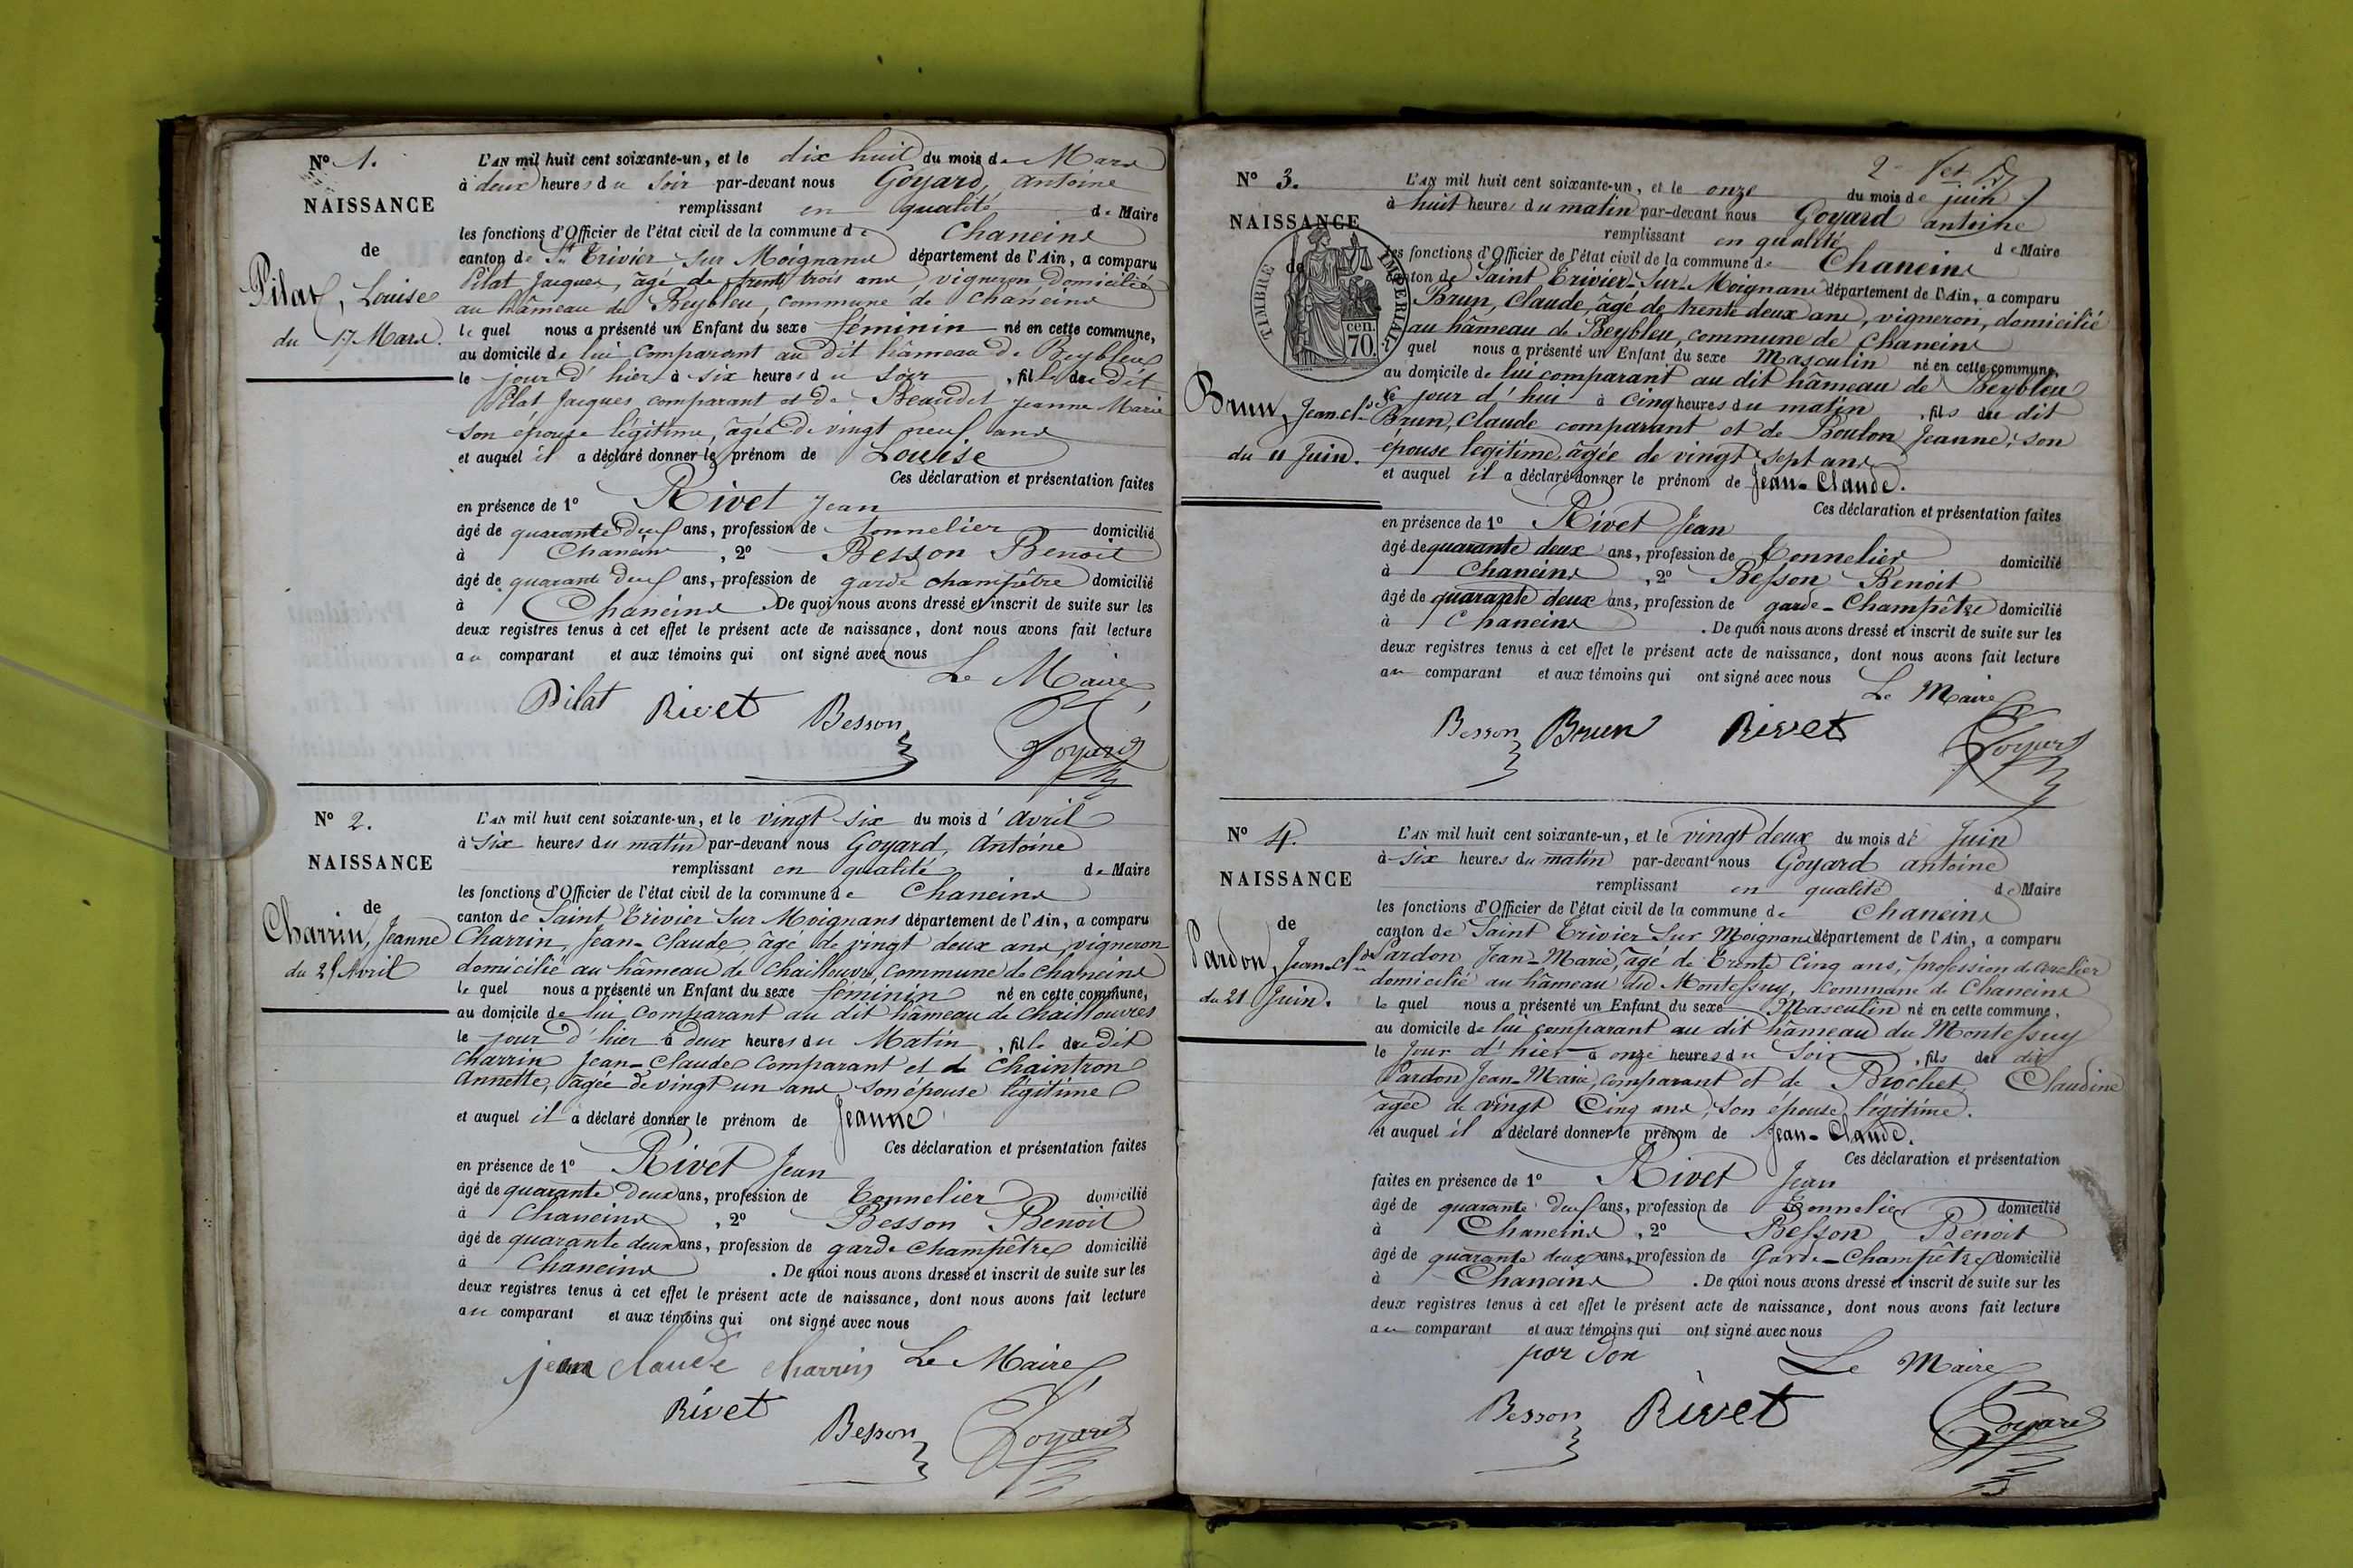 N° 1.
NAISSANCE
de
Pilat, Louise
du 17 Mars.
L'AN mil huit cent soixante-un, et le dix huit du mois de Mars
à deux heures du Soir par-devant nous Goyard, antoine
remplissant en qualité de Maire
les fonctions d'Officier de l'état civil de la commune de Chaneins
canton de St Trivier sur Moignans département de l'Ain, a comparu
Pilat Jacques, âgé de trente trois ans, vigneron, domicilié
au hâmeau de Beybleu, commune de chaneins
le quel nous a présenté un Enfant du sexe féminin né en cette commune,
au domicile de lui comparant au dit hâmeau de Beybleu
le jour d'hier à six heures du soir, fille du dit
Pilat Jacques comparant et de Beaudet Jeanne Marie
son épouse légitime, âgée de vingt neuf ans
et auquel il a déclaré donner le prénom de Louise
Ces déclaration et présentation faites
en présence de 1° Rivet Jean
âgé de quarante deux ans, profession de tonnelier domicilié
à Chaneins, 2° Besson Benoit
âgé de quarante deux ans, profession de garde champêtre domicilié
à Chaneins. De quoi nous avons dressé et inscrit de suite sur les
deux registres tenus à cet effet le présent acte de naissance, dont nous avons fait lecture
au comparant et aux témoins qui ont signé avec nous
Le Maire
Pilat Rivet Besson Goyard
N° 2.
NAISSANCE
de
Charrin, Jeanne
du 25 Avril
L'AN mil huit cent soixante-un, et le vingt six du mois d'avril
à six heures du matin par-devant nous Goyard, Antoine
remplissant en qualité de Maire
les fonctions d'Officier de l'état civil de la commune de Chaneins
canton de Saint Trivier Sur Moignans département de l'Ain, a comparu
Charrin, Jean-Claude, âgé de vingt deux ans, vigneron
domicilié au hâmeau de Chaillouvres, commune de chaneins
le quel nous a présenté un Enfant du sexe féminin né en cette commune,
au domicile de lui comparant au dit hâmeau de Chaillouvres
le jour d'hier à deux heures du Matin, fille du dit
charrin Jean-Claude comparant et de Chaintron
Annette, âgée de vingt un ans son épouse légitime
et auquel il a déclaré donner le prénom de Jeanne
Ces déclaration et présentation faites
en présence de 1° Rivet Jean
âgé de quarante deux ans, profession de Tonnelier domicilié
à Chaneins, 2° Besson Benoit
âgé de quarante deux ans, profession de garde champêtre domicilié
à Chaneins. De quoi nous avons dressé et inscrit de suite sur les
deux registres tenus à cet effet le présent acte de naissance, dont nous avons fait lecture
au comparant et aux témoins qui ont signé avec nous
jean claude charrin Le Maire
Rivet Besson Goyard
2
N° 3.
NAISSANCE
de
TIMBRE IMPERIAL
70 cen.
Brun, Jean-Cl.de
du 11 Juin.
L'AN mil huit cent soixante-un, et le onze du mois de juin
à huit heures du matin par-devant nous Goyard antoine
remplissant en qualité de Maire
les fonctions d'Officier de l'état civil de la commune de Chaneins
canton de Saint Trivier-Sur-Moignans département de l'Ain, a comparu
Brun, Claude, âgé de trente deux ans, vigneron, domicilié
au hâmeau de Beybleu, commune de Chaneins
quel nous a présenté un Enfant du sexe Masculin né en cette commune,
au domicile de lui comparant au dit hâmeau de Beybleu
le jour d'hui à cinq heures du matin, fils du dit
Brun, Claude comparant et de Boulon Jeanne, son
épouse légitime, âgée de vingt sept ans
et auquel il a déclaré donner le prénom de Jean-Claude.
Ces déclaration et présentation faites
en présence de 1° Rivet Jean
âgé de quarante deux ans, profession de Tonnelier domicilié
à Chaneins, 2° Besson Benoit
âgé de quarante deux ans, profession de garde-Champêtre domicilié
à Chaneins. De quoi nous avons dressé et inscrit de suite sur les
deux registres tenus à cet effet le présent acte de naissance, dont nous avons fait lecture
au comparant et aux témoins qui ont signé avec nous
Le Maire
Besson Brun Rivet Goyard
N° 4.
NAISSANCE
de
Pardon, Jean-Cl.de
du 21 Juin.
L'AN mil huit cent soixante-un, et le vingt deux du mois de Juin
à six heures du matin par-devant nous Goyard antoine
remplissant en qualité de Maire
les fonctions d'Officier de l'état civil de la commune de Chaneins
canton de Saint Trivier Sur Moignans département de l'Ain, a comparu
Pardon Jean-Marie, âgé de Trente Cinq ans, profession de
domicilié au hâmeau du Montessuy, commune de Chaneins
le quel nous a présenté un Enfant du sexe Masculin né en cette commune,
au domicile de lui comparant au dit hâmeau du Montessuy
le Jour d'hier à onze heures du Soir, fils du dit
Pardon Jean-Marie, comparant et de Brochet Claudine
âgée de vingt Cinq ans, son épouse légitime.
et auquel il a déclaré donner le prénom de Jean-Claude.
Ces déclaration et présentation
faites en présence de 1° Rivet Jean
âgé de quarante deux ans, profession de Tonnelier domicilié
à Chaneins, 2° Besson Benoit
âgé de quarante deux ans, profession de Garde-Champêtre domicilié
à Chaneins. De quoi nous avons dressé et inscrit de suite sur les
deux registres tenus à cet effet le présent acte de naissance, dont nous avons fait lecture
au comparant et aux témoins qui ont signé avec nous
par don Le Maire
Besson Rivet Goyard